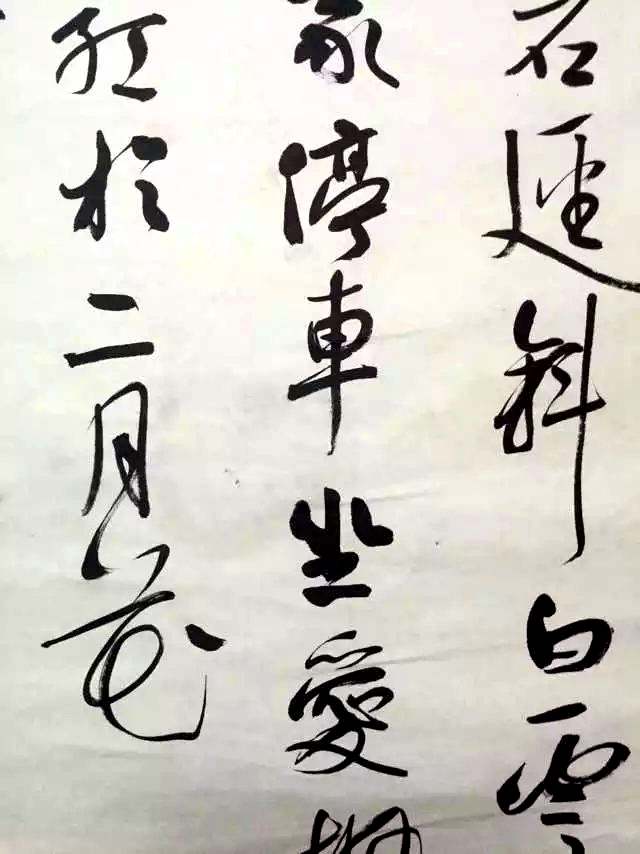 石径斜白雲
家停車坐愛楓
紅於二月花